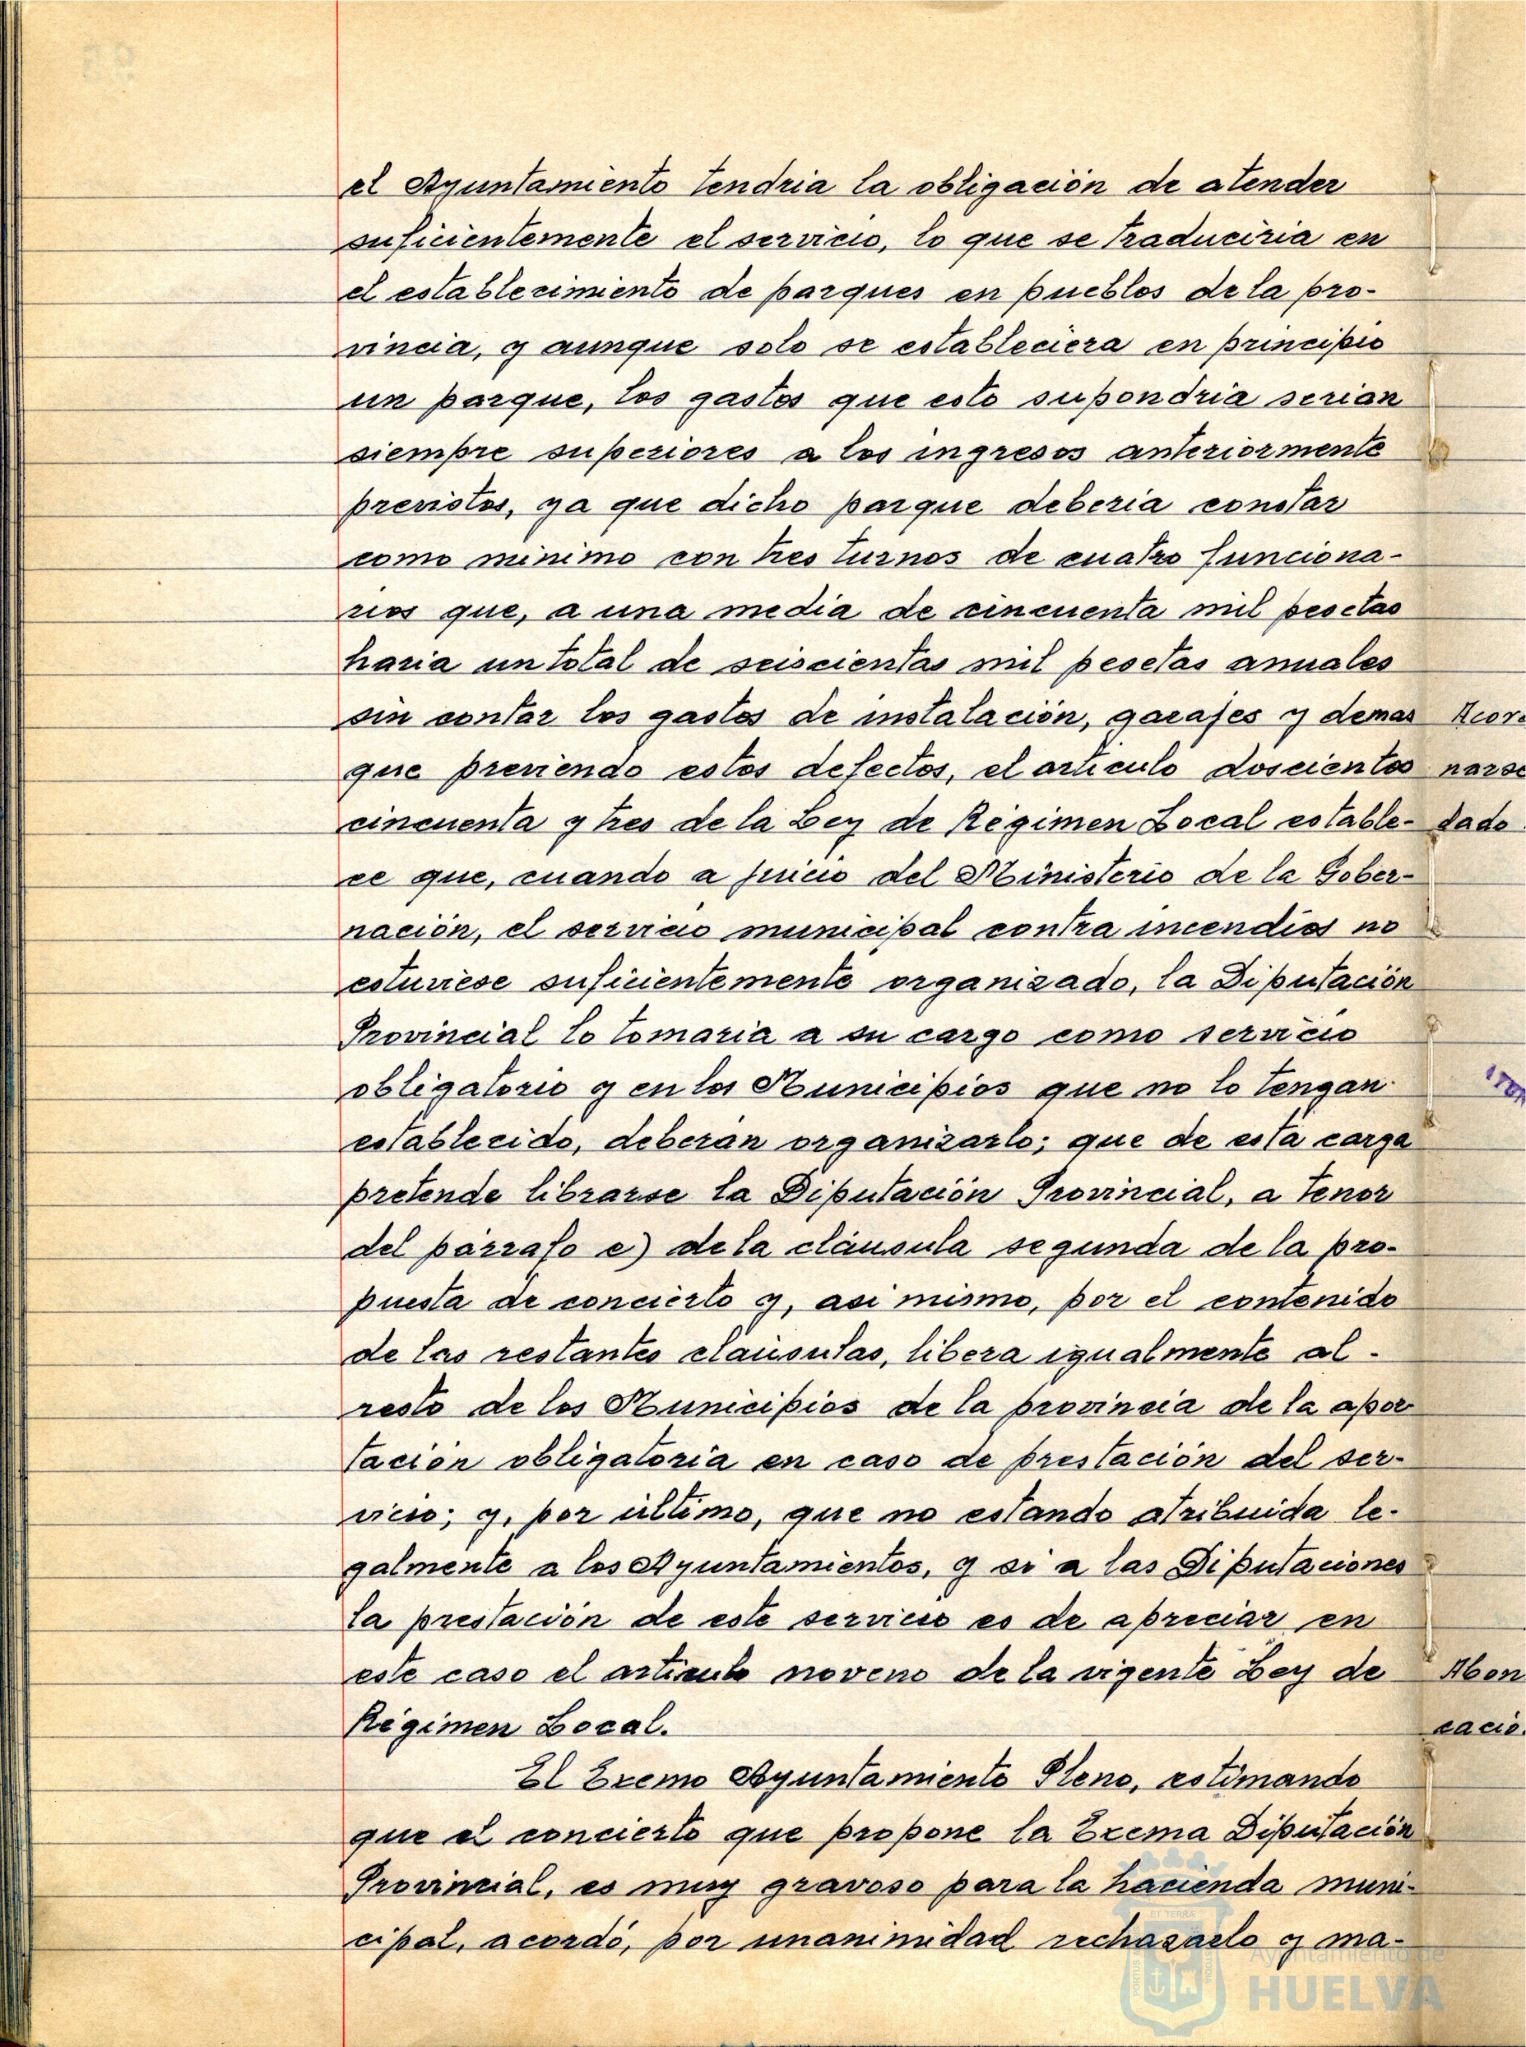 el Ayuntamiento tendria la obligación de atender
suficientemente el servicio, lo que se traduciria en
el establecimiento de parques en pueblos de la pro-
vincia, y aunque solo se estableciera en principio
un parque, los gastos que esto supondria serian
siempre superiores a los ingresos anteriormente
previstos, ya que dicho parque deberia constar
como minimo con tres turnos de cuatro funciona-
rios que, a una media de cincuenta mil pesetas
haria un total de seiscientas mil pesetas anuales
sin contar los gastos de instalación, garajes y demas
que previendo estos defectos, el articulo doscientos
cincuenta y tres de la Ley de Régimen Local estable-
ce que, cuando a juicio del Ministerio de la Gober-
nación, el servicio municipal contra incendios no
estuviese suficientemente organizado, la Diputación
Provincial lo tomaria a su cargo como servicio
obligatorio y en los Municipios que no lo tengan
establecido, deberán organizarlo; que de esta carga
pretende librarse la Diputación Provincial, a tenor
del párrafo e) de la cláusula segunda de la pro-
puesta de concierto y, asi mismo, por el contenido
de las restantes claúsulas, libera igualmente al-
resto de los Municipios de la provincia de la apor
tación obligatoria en caso de prestación del ser-
vicio; y, por último, que no estando atribuida le-
galmente a los Ayuntamientos, y si a las Diputaciones
la prestación de este servicio es de apreciar en
este caso el articulo noveno de la vigente Ley de
Régimen Local.
El Excmo Ayuntamiento Pleno, estimando
que el concierto que propone la Excma Diputación
Provincial, es muy gravoso para la hacienda muni-
cipal, acordó, por unanimidad rechazarlo y ma-
Acor
narse
dado
Abon
cacio
Ayuntamiento de
HUELVA